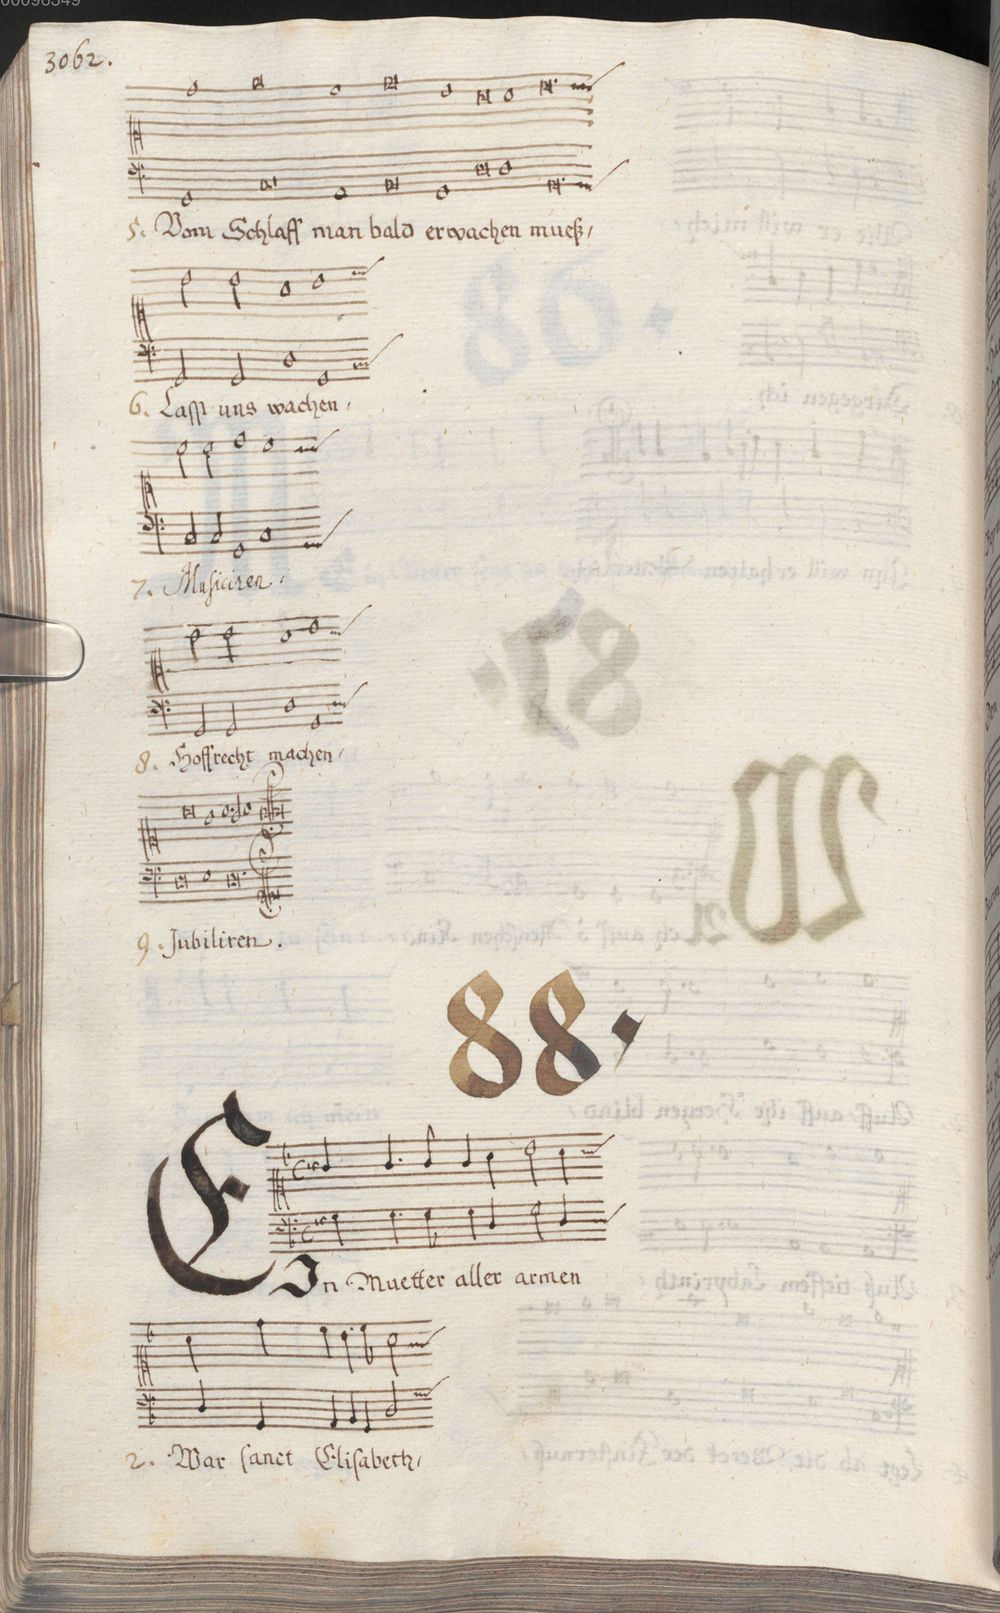 3062.
5. Vom Schlaff man bald erwachen mueß/
6. Lasst uns wachen/
7. Musiciren/
8. Hoffrecht machen/
9. Jubiliren.
88.
EIn Muetter aller armen
2. War sanct Elisabeth/